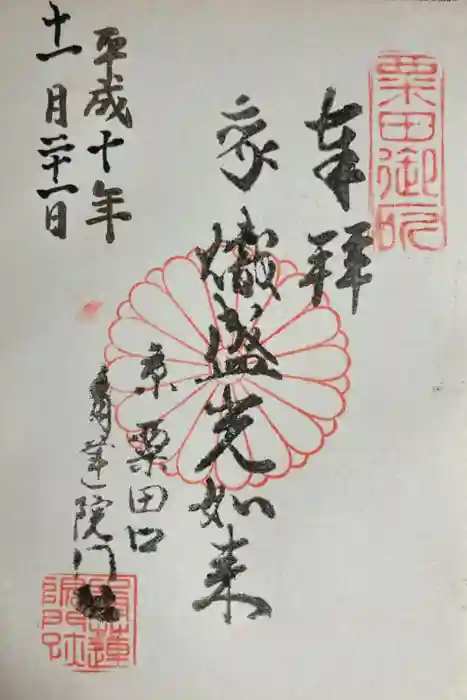 粟田御所
奉拝
熾盛光如来
京粟田口
青蓮院門跡
平成十年
十一月二十一日
青蓮院門跡